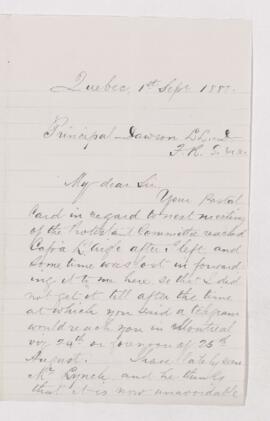 Quebec, 1st Sept 1880.
Principal Dawson LL.D
F.R.
My dear Sir
Your Postal
Card in regard to next meeting
of the Protestant Committee reached
Cap à l'Aigle after I left, and
some time was lost in forward-
ing it to me here so that I did
not get it till after the time
at which you said a telegram
would reach you in Montreal
viz 24th or forenoon of 25th
August. I have lately seen
Mr Lynch and he thinks
that it is now unavoidable